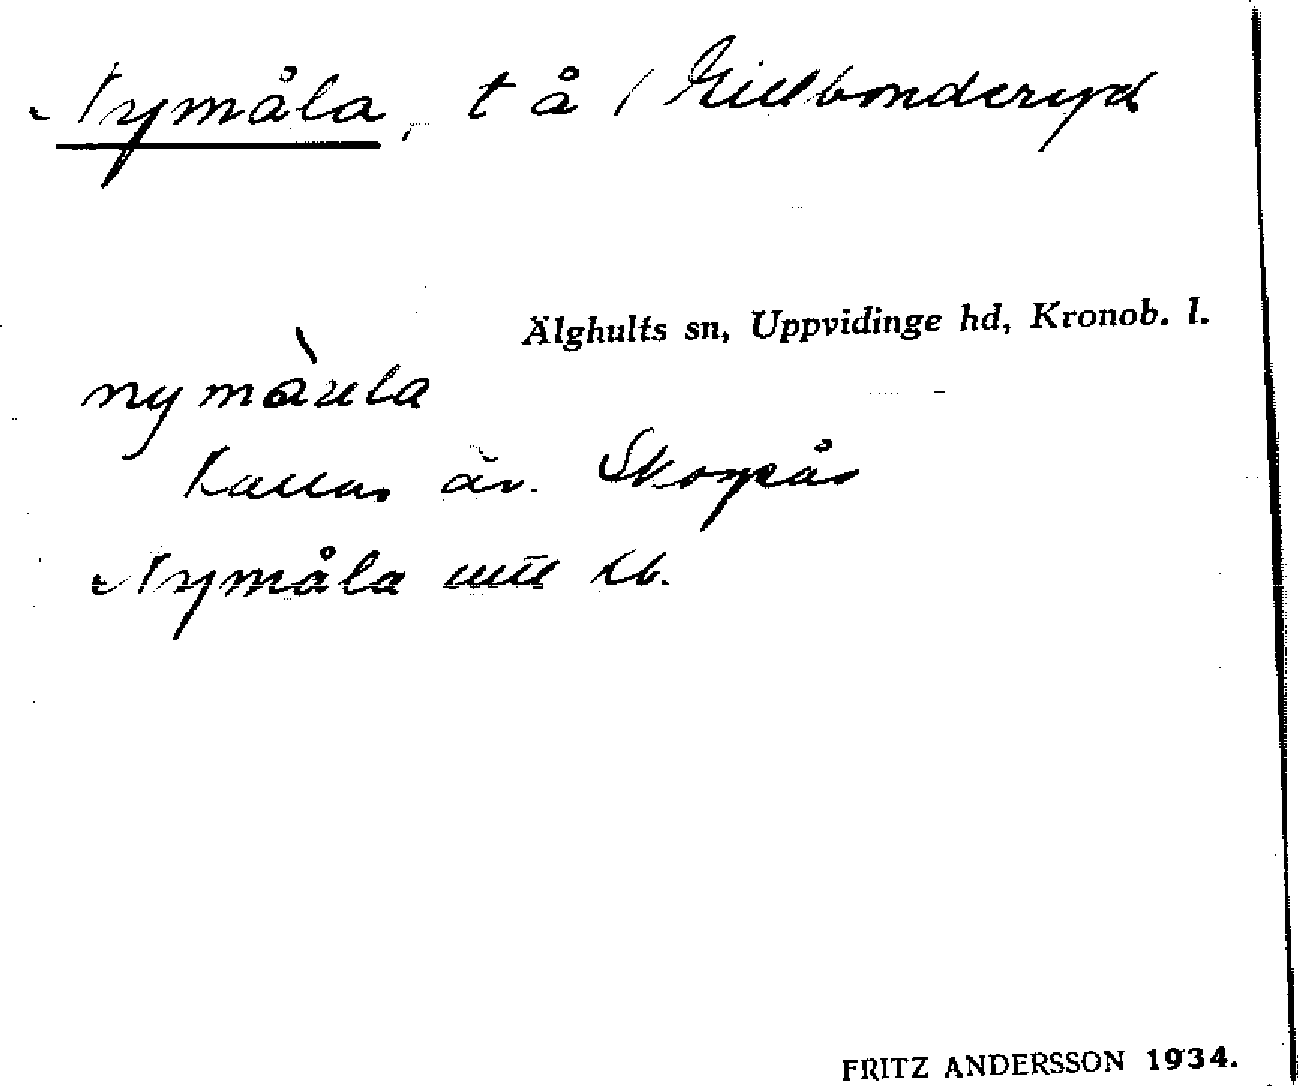 Nymåla, t å / Gillbonderyd
Älghults sn, Uppvidinge hd, Kronob. l.
nymàula
kallas äv. Skogås
Nymåla
FRITZ ANDERSSON 1934.